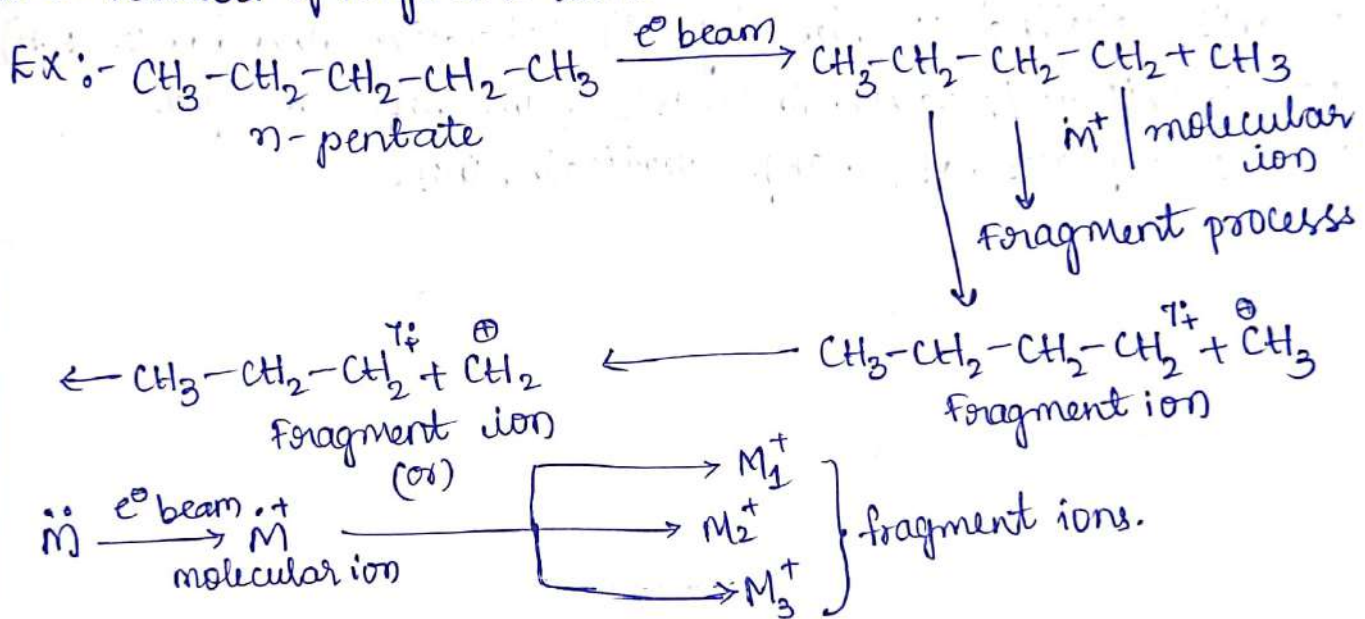 Ex:- CH₃-CH₂-CH₂-CH₂-CH₃ —e⊖ beam→ CH₃-CH₂-CH₂-CH₂ + CH3
n-pentate
ṁ⁺ | molecular ion
Fragment processs
← CH₃-CH₂-CH₂ + CH₂ ← CH₃-CH₂-CH₂-CH₂ + CH₃
Fragment ion
Fragment ion
(or)
M̈ —e⊖ beam→ Ṁ⁺ → M₁⁺
M₂⁺ } fragment ions.
molecular ion
M₃⁺